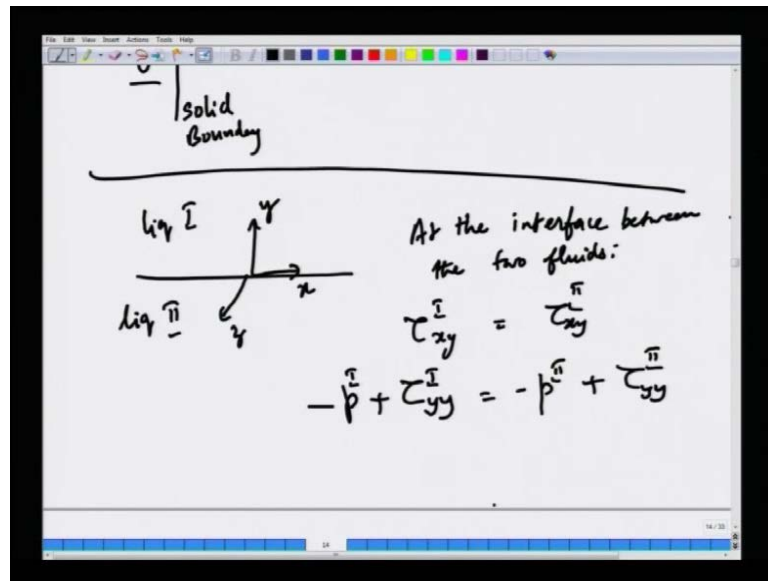 File Edit View Insert Actions Tools Help
solid
Boundary
liq I
y
x
z
liq II
At the interface between
the two fluids:
τ_xy^I = τ_xy^II
-p^I + τ_yy^I = -p^II + τ_yy^II
14/33
14